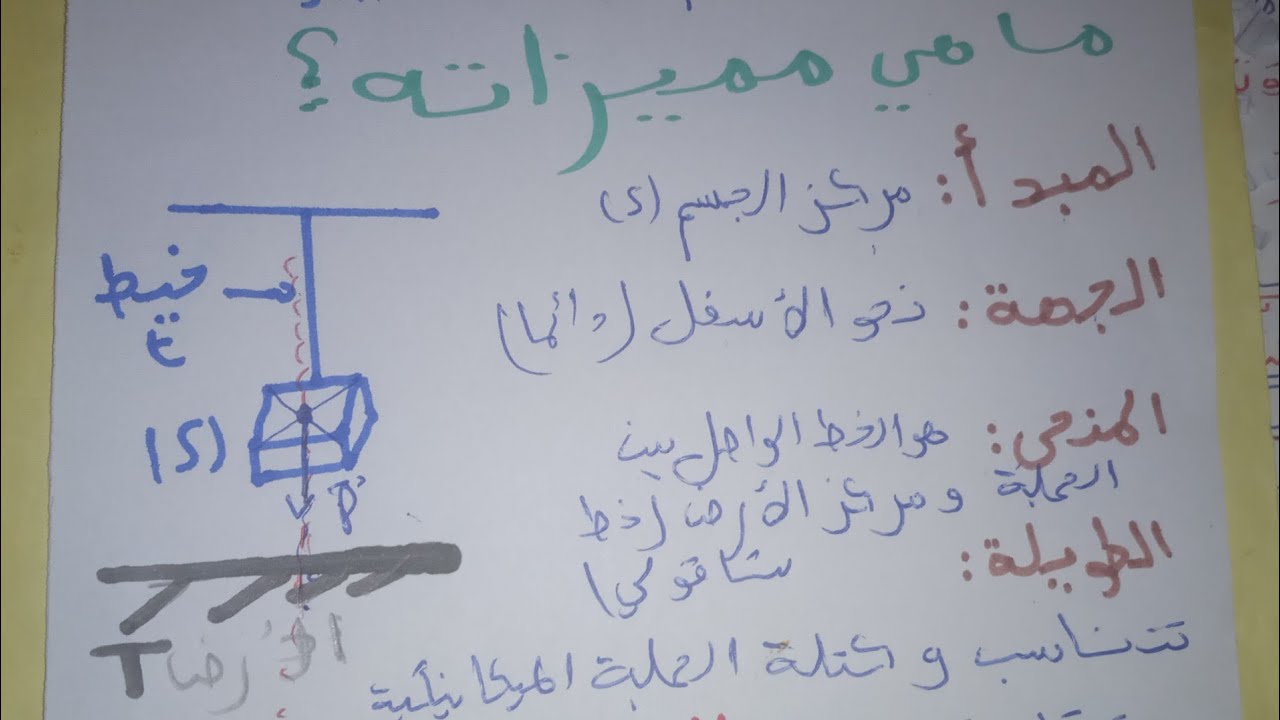 ما هي مميزاته؟
المبدأ: مركز الجسم (S)
الجهة: نحو الأسفل (دائما)
المنحى: هو الخط الواصل بين
الجملة و مركز الأرض (خط
شاقولي)
الطويلة:
تتناسب و كتلة الجملة الميكانيكية
خيط
(S)
P
الأرض T